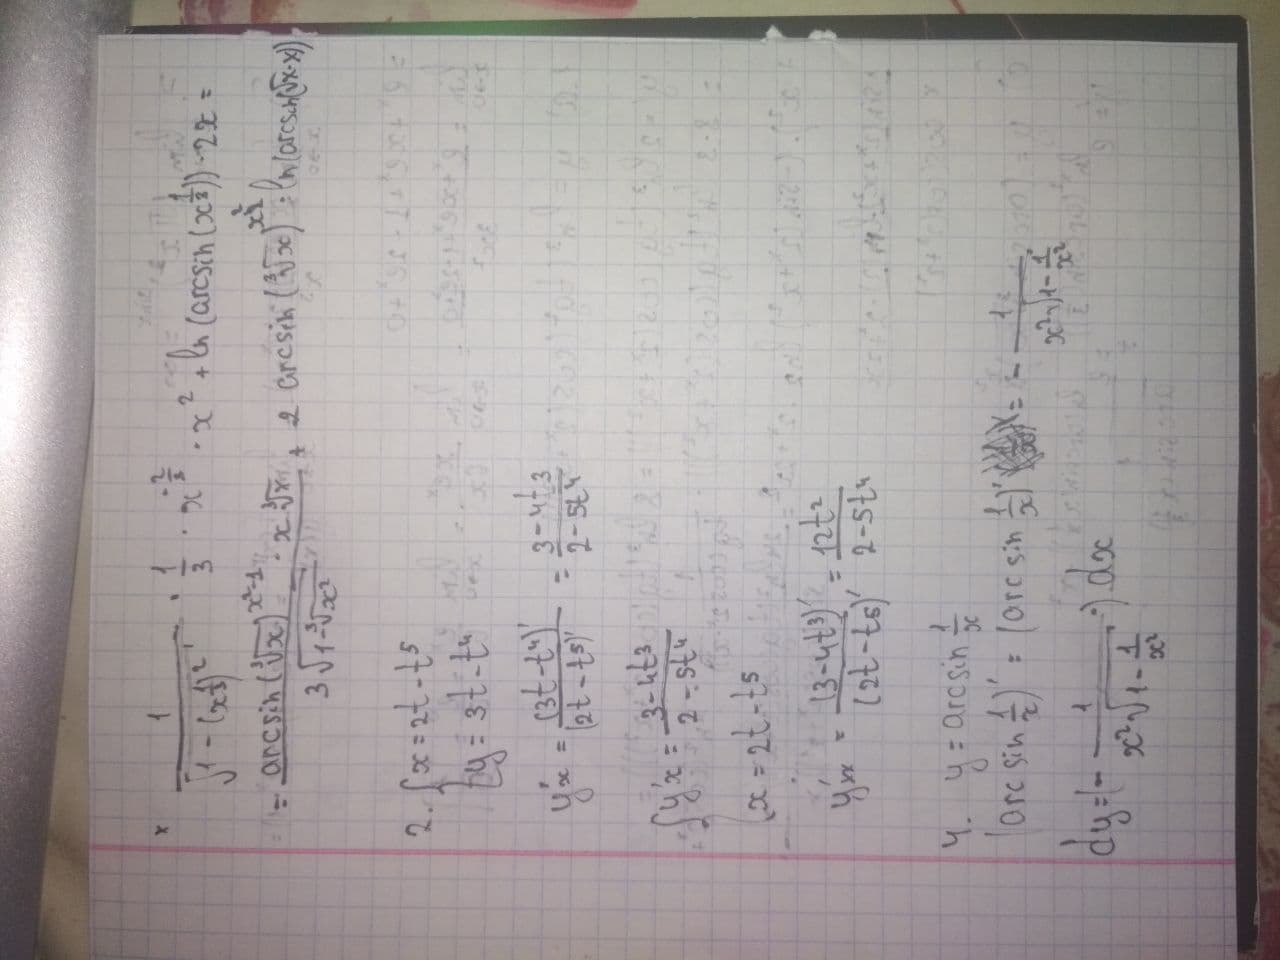 × 1/√(1-(x^(1/3))^2) · 1/3 · x^(-2/3) · x^2 + ln(arcsin(x^(1/3))) · 2x =
= (arcsin(∛x)^(x^2-1) · x ∛x)/(3√(1-∛x^2)) + 2 arcsin(∛x)^(x^2) · ln(arcsin(√x·x))
2. { x = 2t - t^5
{ y = 3t - t^4
y'x = (3t - t^4)'/(2t - t^5)' = (3 - 4t^3)/(2 - 5t^4)
{ y'x = (3 - 4t^3)/(2 - 5t^4)
{ x = 2t - t^5
y''xx = (3 - 4t^3)'/(2t - t^5)' = 12t^2/(2 - 5t^4)
4. y = arcsin 1/x
(arcsin 1/x)' = (arcsin 1/x)' = - 1/(x^2 √(1 - 1/x^2))
dy = (- 1/(x^2 √(1 - 1/x^2))) · dx